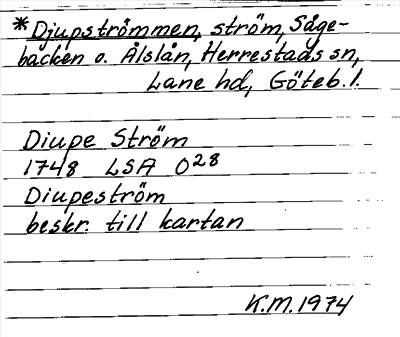 *Djupströmmen, ström, Såge-
backen o. Ålslån, Herrestads sn,
Lane hd, Göteb. l.
Diupe Ström
1748 LSA O28
Diupeström
beskr. till kartan
K.M. 1974